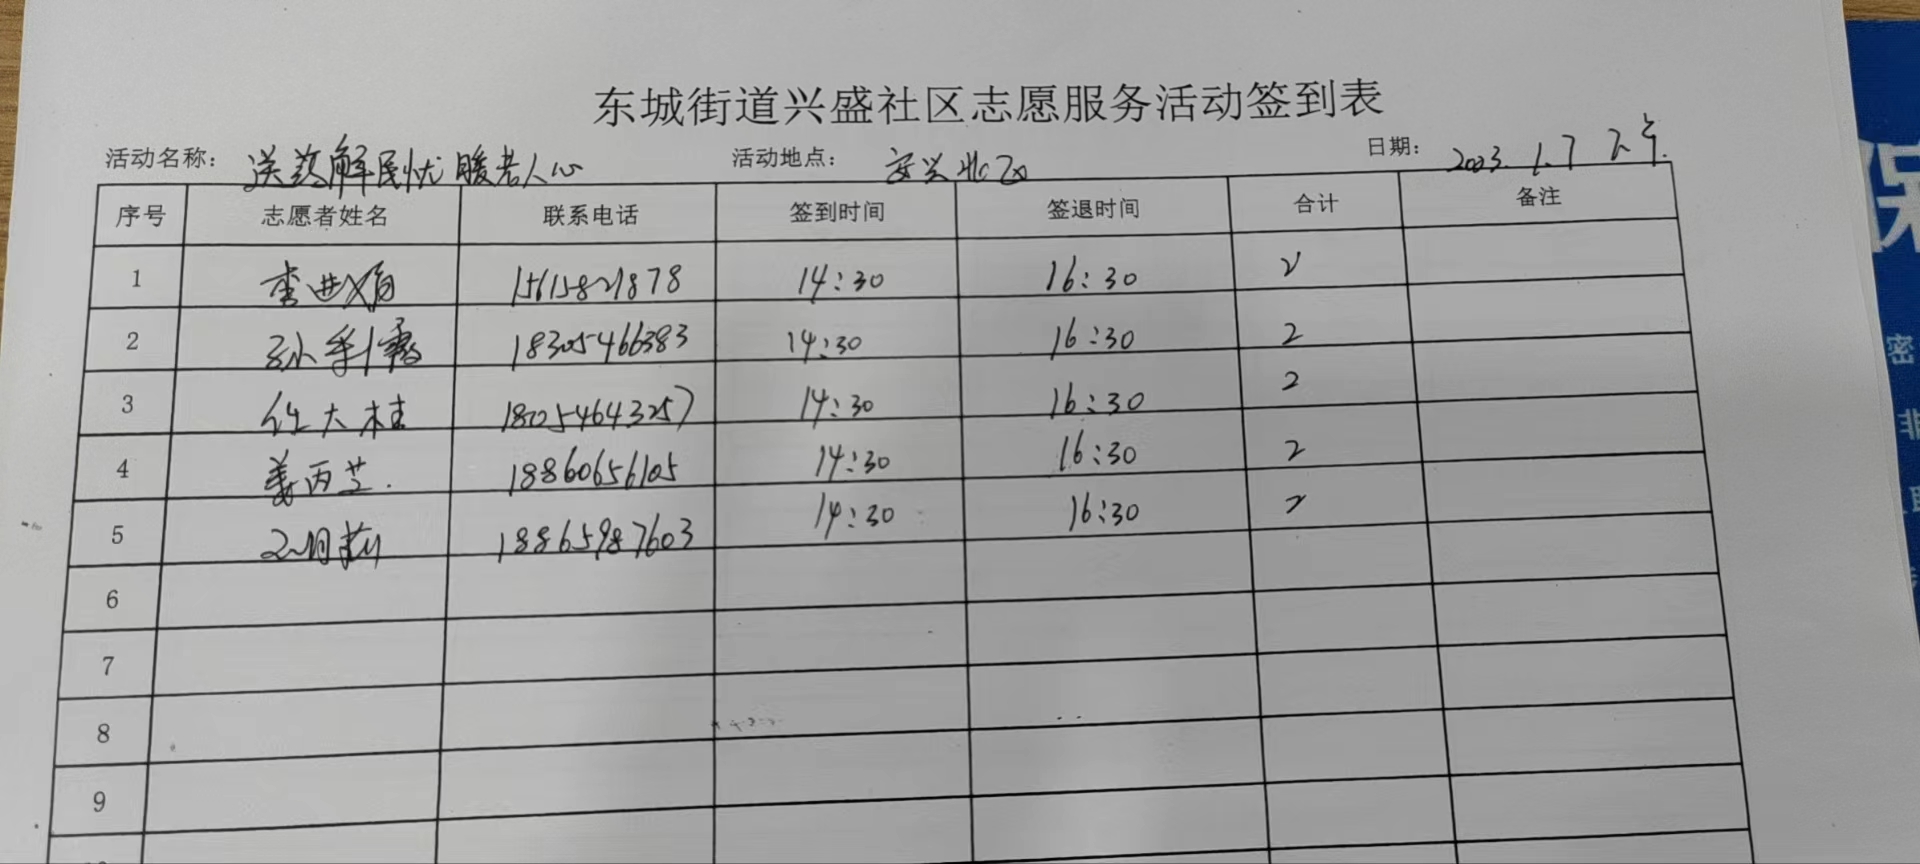 东城街道兴盛社区志愿服务活动签到表
活动名称： 送药解民忧 暖老人心 活动地点： 安兴北区 日期： 2023.1.7 下午.
序号 志愿者姓名 联系电话 签到时间 签退时间 合计 备注
1 15615821878 14:30 16:30 2
2 18305466383 14:30 16:30 2
3 任大桂 18054643257 14:30 16:30 2
4 姜丙芝. 18860656105 14:30 16:30 2
5 18865987603 14:30 16:30 2
6
7
8
9
保
密
非